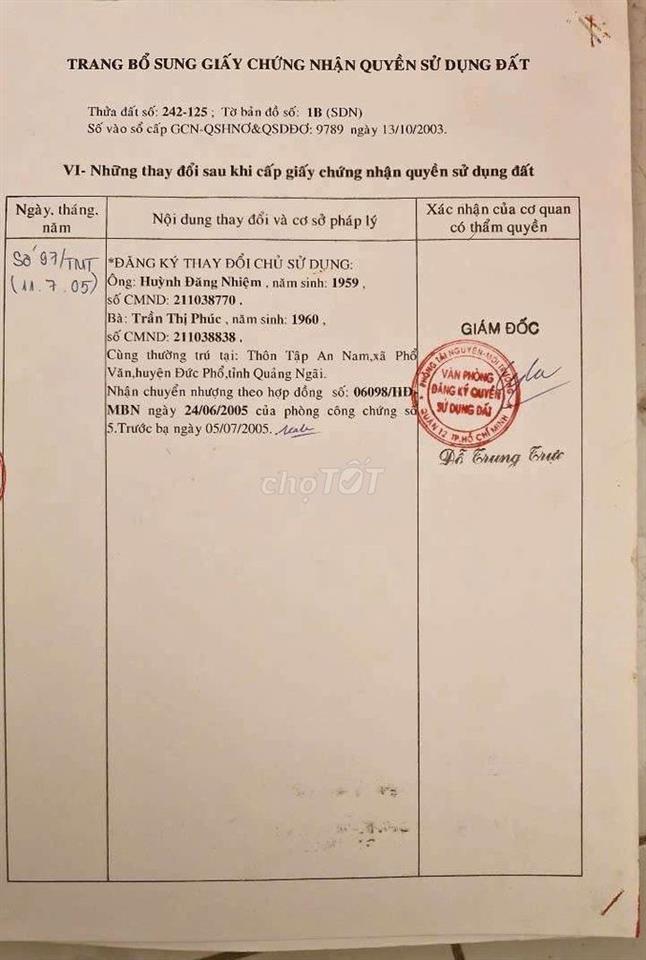 TRANG BỔ SUNG GIẤY CHỨNG NHẬN QUYỀN SỬ DỤNG ĐẤT
Thửa đất số: 242-125 ; Tờ bản đồ số: 1B (SDN)
Số vào sổ cấp GCN-QSHNƠ&QSDĐƠ: 9789 ngày 13/10/2003.
VI- Những thay đổi sau khi cấp giấy chứng nhận quyền sử dụng đất
Ngày, tháng, năm
Nội dung thay đổi và cơ sở pháp lý
Xác nhận của cơ quan có thẩm quyền
Số 97/TNT
(11.7.05)
*ĐĂNG KÝ THAY ĐỔI CHỦ SỬ DỤNG:
Ông: Huỳnh Đăng Nhiệm , năm sinh: 1959 ,
số CMND: 211038770 .
Bà: Trần Thị Phúc , năm sinh: 1960 ,
số CMND: 211038838 .
Cùng thường trú tại: Thôn Tập An Nam,xã Phổ
Văn,huyện Đức Phổ,tỉnh Quảng Ngãi.
Nhận chuyển nhượng theo hợp đồng số: 06098/HĐ-
MBN ngày 24/06/2005 của phòng công chứng số
5.Trước bạ ngày 05/07/2005.
GIÁM ĐỐC
PHÒNG TÀI NGUYÊN-MÔI TRƯỜNG
VĂN PHÒNG
ĐĂNG KÝ QUYỀN
SỬ DỤNG ĐẤT
QUẬN 12 TP.HỒ CHÍ MINH
Đỗ Trung Trực
chợTỐT